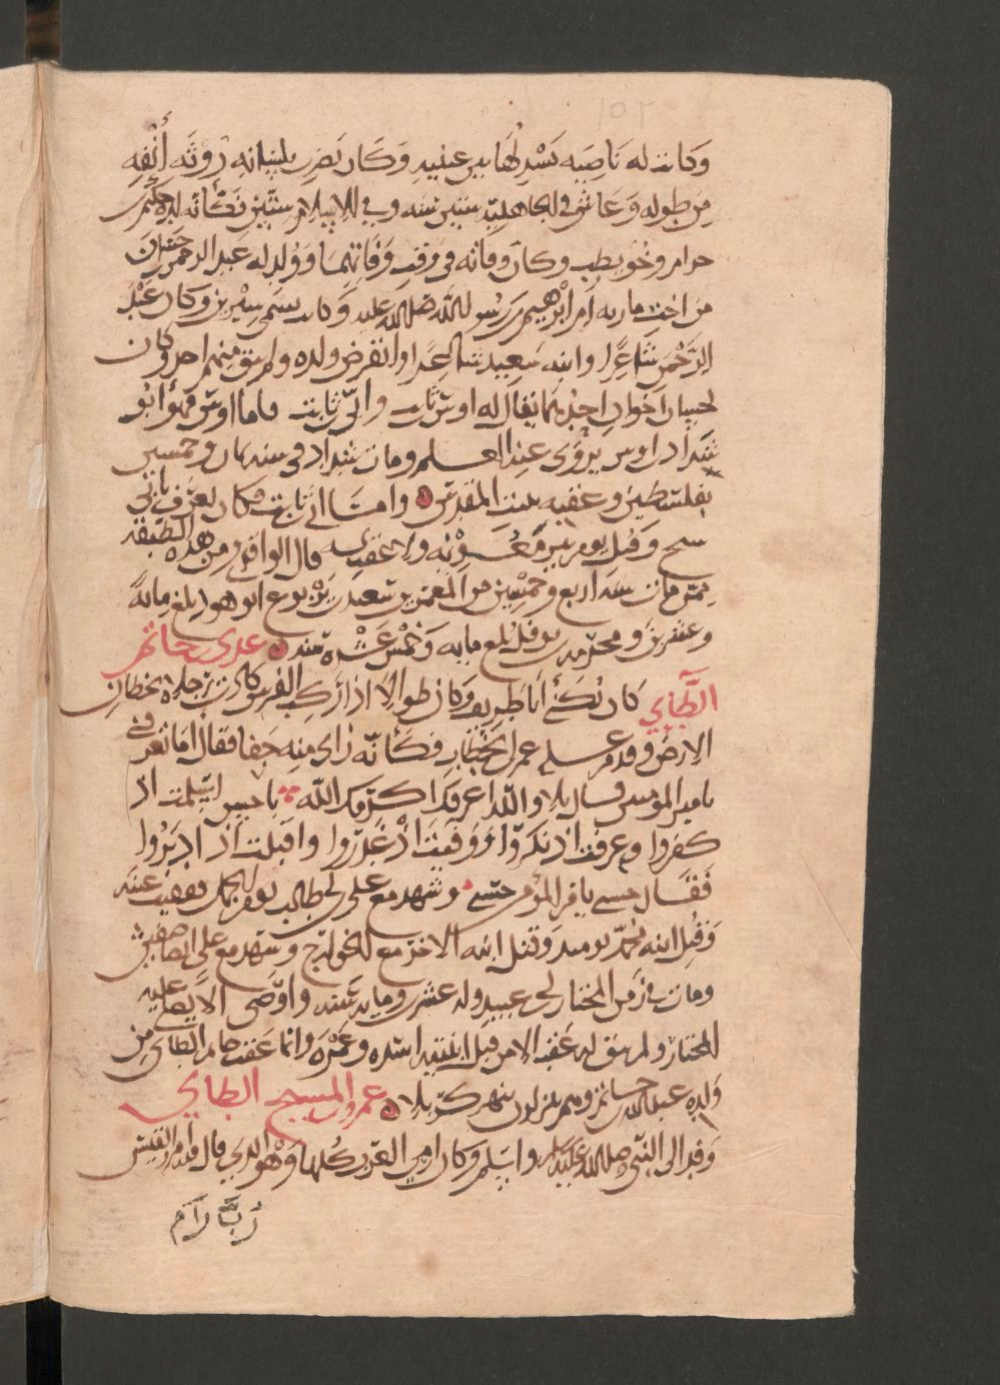 وكانت له ناصية يسدلها بين عينيه وكان يضرب بلسانه روثة أنفه
من طوله وعاش في الجاهلية ستين سنة وفي الاسلام ستين فكأنه لدة حكيم بن
حزام وحويطب وكان وفاته في وقت وفاتهما وولد له عبد الرحمن بن حسان
من اخت مارية أم ابرهيم بن رسول الله صلى الله عليه وكانت تسمى سيرين وكان عبد
الرحمن شاعرا وابنه سعيد شاعرا وانقرض ولده ولم يبق منهم احد وكان
لحسان اخوان احدهما يقال له اوس بن ثابت وابي بن ثابت فاما اوس فهو ابو
شداد بن اوس يروى عنه العلم ومات شداد في سنة ثمان وخمسين
بفلسطين وعقبه ببيت المقدس واما ابي بن ثابت فكان يعرف بابي
شيخ وقتل يوم بئر معونة ولا عقب له قال الواقدي ومن هذه الطبقة
ممن مات سنة اربع وخمسين من المعمرين سعيد بن يربوع ابو هود بلغ مائة
وعشرين ومخرمة بن نوفل بلغ مايه وخمس عشرة سنة عدي بن حاتم
الطاي كان يكنى أبا طريف وكان طوالا اذا ركب الفرس كادت رجلاه تخطان
الارض وقدم على عمر بن الخطاب فكأنه رأى منه جفا فقال اما تعرفني
يا امير المومنين قال بلى والله اعرفك اكرمك الله باحسن اسلمت اذ
كفروا وعرفت اذ نكروا ووفيت اذ غدروا واقبلت اذ ادبروا
فقال حسبي يا امير المؤمنين حسبي وشهد مع علي بن ابي طالب يوم الجمل ففقئت عينه
وقتل ابنه محمد يومئذ وقتل ابنه الاخر مع الخوارج وشهد مع علي ايضا صفين
ومات في زمن المختار بن ابي عبيد وله عشرون وماية سنة واوصى الا يصلي عليه
المختار ولم يبق له عقب الا من قبل ابنتيه اسدة وعمرة وانما عقب حاتم الطاي من
ولده عبد الله بن حاتم وهم ينزلون بنهر كربلا عمرو بن المسيح الطاي
وفد الى النبي صلى الله عليه وسلم واسلم وكان ارمى العرب كلها وهو الذي قال فيه امرؤ القيس
رب رام